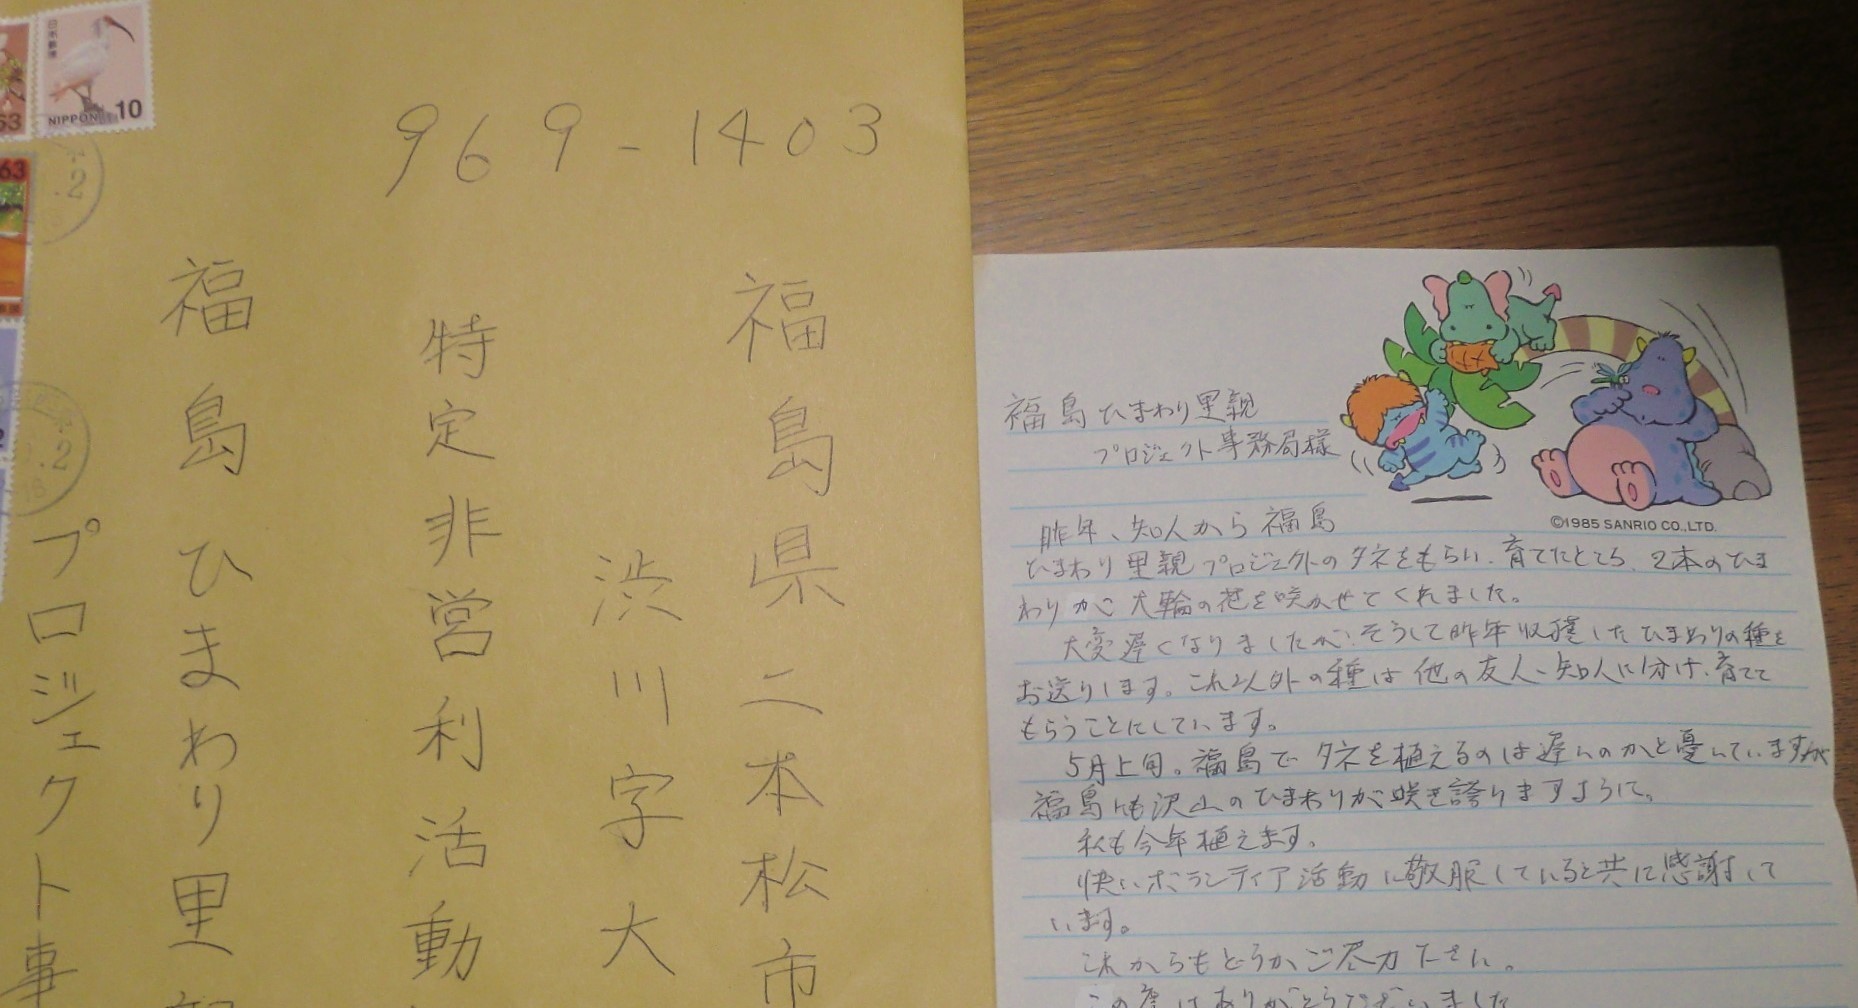 日本郵便
NIPPON 10
63
63
969-1403
福島県二本松市
渋川字大
特定非営利活動
福島ひまわり里親
プロジェクト事
©1985 SANRIO CO.,LTD.
福島ひまわり里親
プロジェクト事務局様
昨年、知人から福島
ひまわり里親プロジェクトのタネをもらい、育てたところ、2本のひま
わりが大輪の花を咲かせてくれました。
大変遅くなりましたが、そうして昨年収穫したひまわりの種を
お送りします。これ以外の種は他の友人、知人に分け、育てて
もらうことにしています。
5月上旬。福島でタネを植えるのは遅いのかと憂いていますが
福島にも沢山のひまわりが咲き誇りますように。
私も今年植えます。
快いボランティア活動に敬服していると共に感謝して
います。
これからもどうかご尽力下さい。
この度はありがとうございました